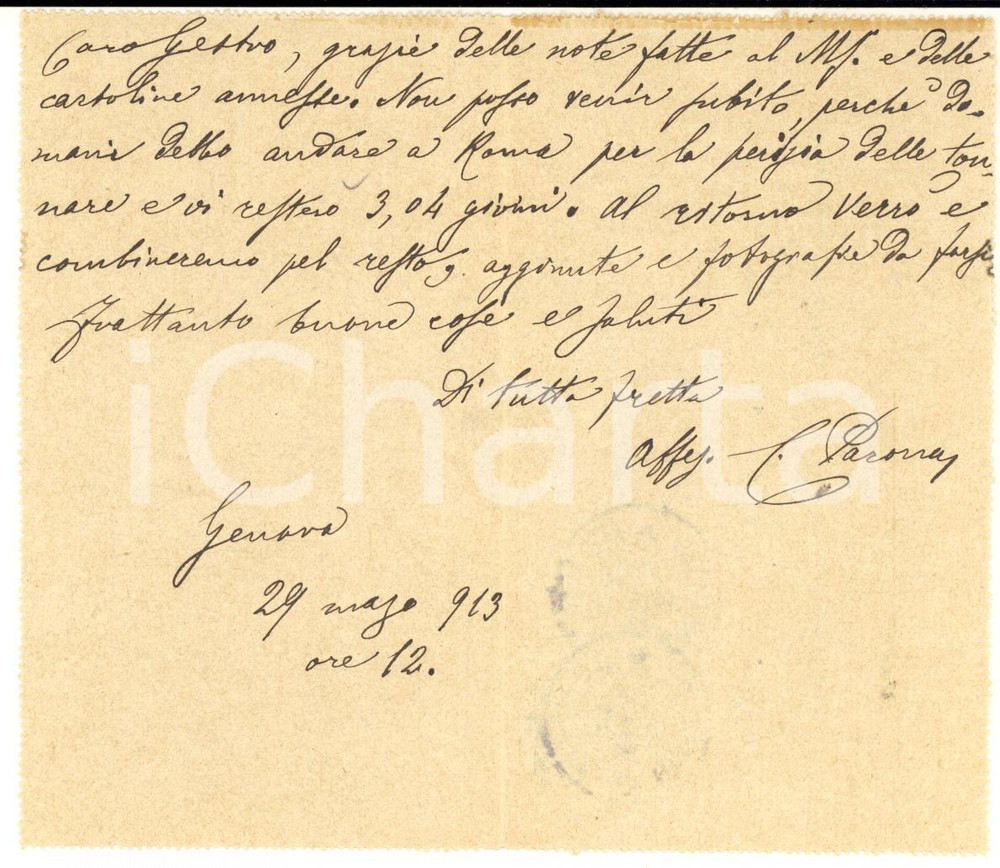 Caro Gestro, grazie delle note fatte al MS. e delle
cartoline annesse. Non posso venir subito, perchè do-
mani debbo andare a Roma per la perizia delle ton-
nare e vi resterò 3, o 4 giorni. Al ritorno verrò e
combineremo pel resto aggiunte e fotografie da farsi
Frattanto buone cose e saluti
Di tutta fretta
Affez. C. Parona
iCharta
Genova
29 mago 913
ore 12.